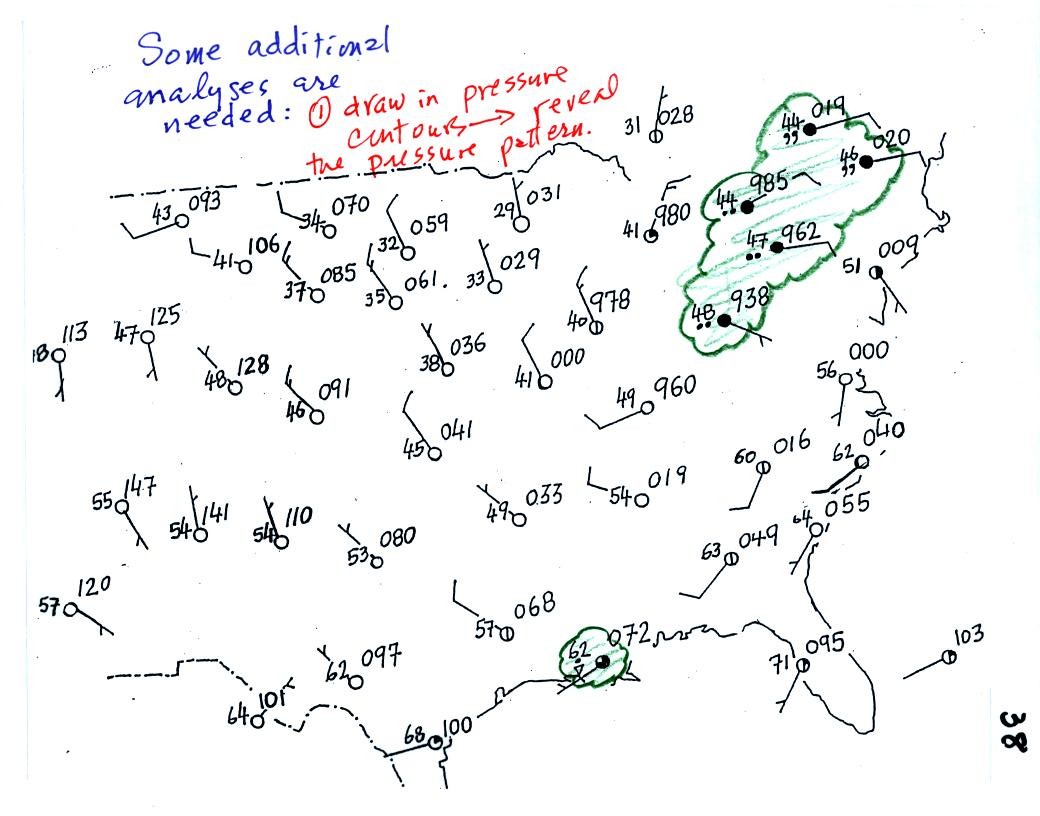 Some additional
analyses are
needed: ① draw in pressure
contours → reveal
the pressure pattern.
31 028
44 019
,,
46 020
,,
43 093
34 070
32 059
29 031
41 980
44 985
••
47 962
••
51 009
41 106
37 085
35 061.
33 029
40 978
48 938
••
18 113
47 125
48 128
46 091
38 036
41 000
49 960
56 000
45 041
60 016
62 040
55 147
54 141
54 110
53 080
49 033
54 019
64 055
63 049
57 120
57 068
62 072
71 095
103
62 097
64 101
68 100
38